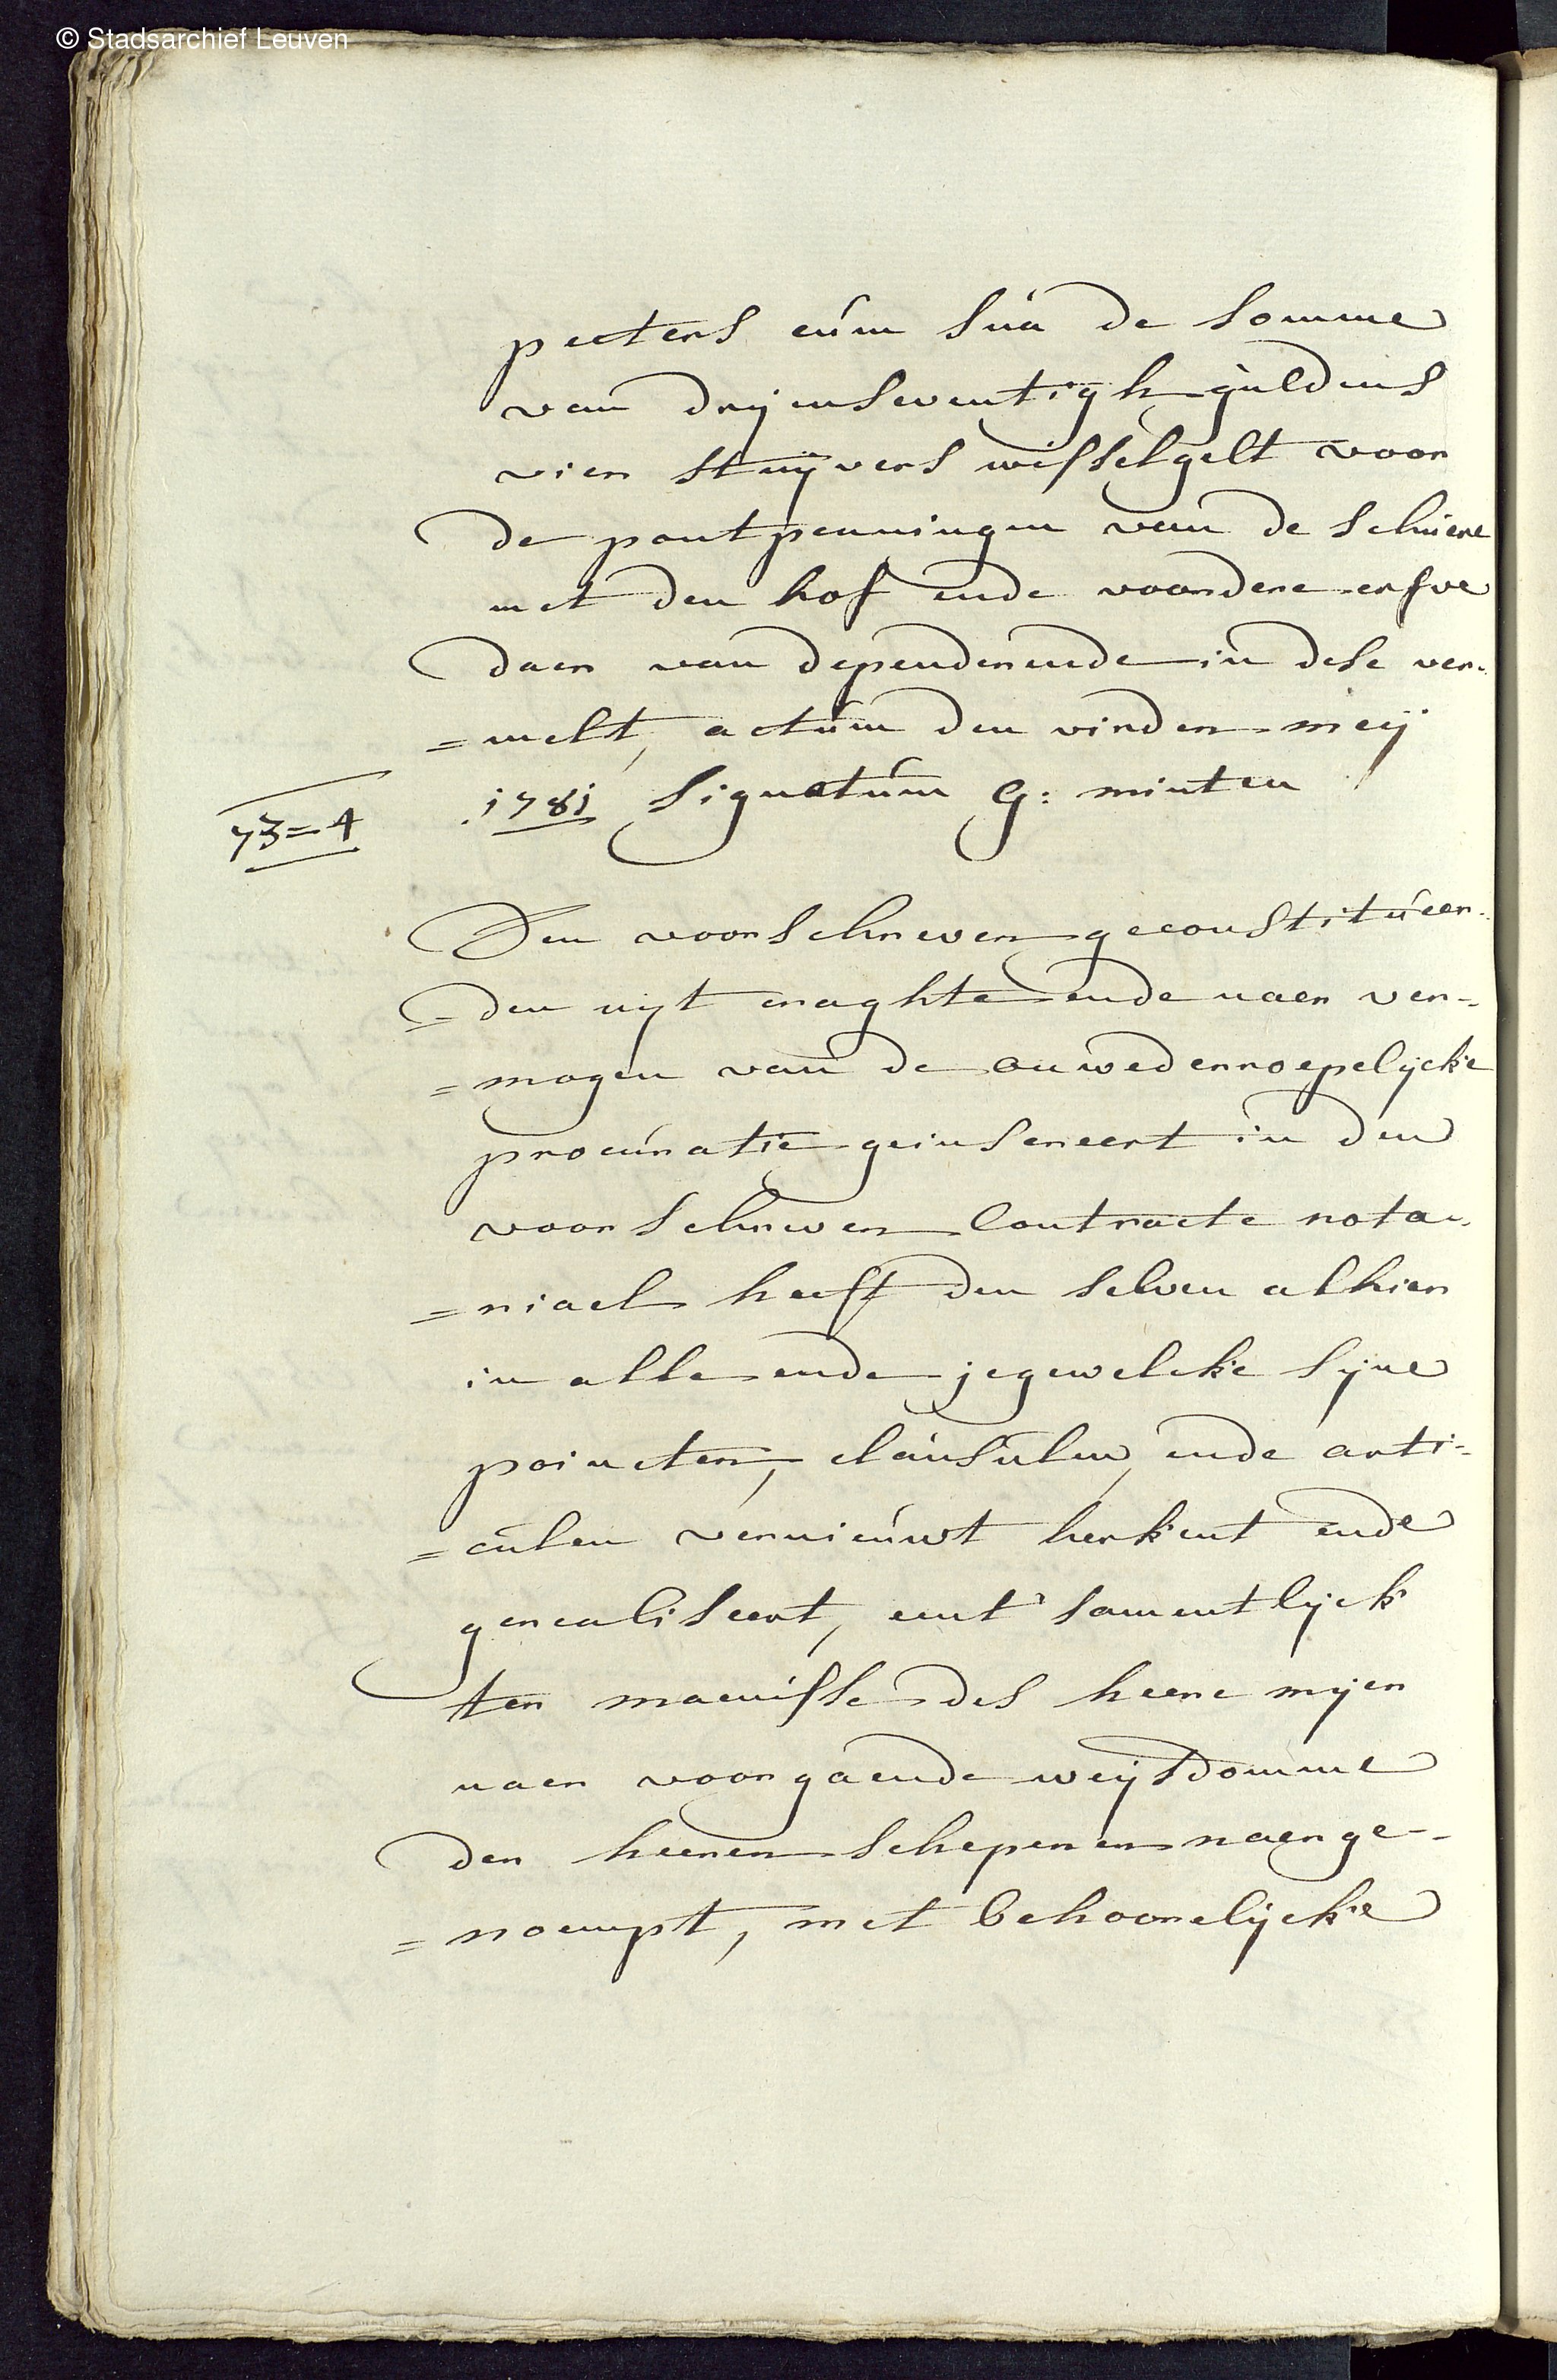 © Stadsarchief Leuven
peeters cúm súa de somme
van drijenseventigh guldens
vier stuijvers wisselgelt voor
de pontpenningen van de schuere
met den hof ende voordere erfve
daer van dependerende in dese ver-
=melt, actúm den vierden meij
1781 signatúm G: minten
73=4
Den voorschreven geconstitúeer-
=den uijt craghte ende naer ver-
=mogen van de onwederroepelijcke
procúratie geinsereert in den
voorschreven Contracte nota-
=riael heeft den selven alhier
in alle ende jegewelcke sijne
poincten, claúsúlen, ende arti-
=cúlen vernieúwt herkent ende
gerealiseert, ent' samentlijck
ter maenisse des heere mijer
naer voorgaende weijsdomme
der heeren schepenen naerge-
=noempt, met behoorelijcke